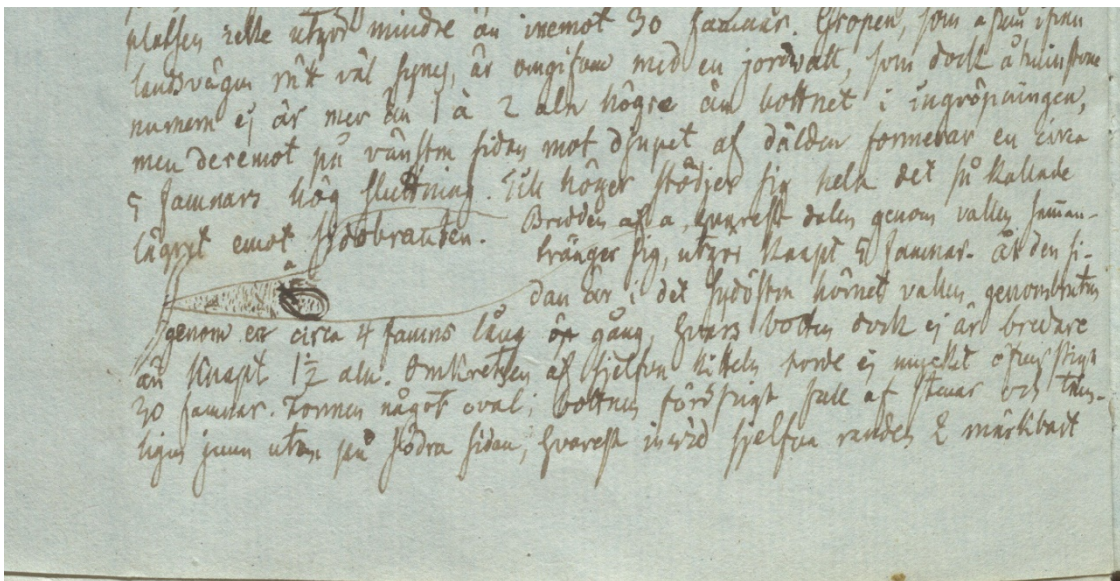 platsen icke utgör mindre än inemot 30 famnar. Gropen, som ofvan ifrån
landsvägen rätt väl synes, är omgifven med en jordvall, som dock åtminstone
numera ej är mer än 1 à 2 aln högre än bottnet i ingröpningen,
men deremot på venstra sidan mot djupet af dälden formerar en circa
5 famnars hög sluttning. Till höger stödjer sig hela det så kallade
lägret emot sidobranten.
Bredden af a, hvarest dalen genom vallen samman-
tränger sig, utgör knapt 5 famnar. Åt den si-
a
dan är i det sydöstra hörnet vallen genombruten
genom en circa 4 famns lång gång, hvars botten dock ej är bredare
än knapt 1½ aln. Omkretsen af sjelfva kitteln torde ej mycket öfverstiga
30 famnar. Formen något oval; bottnen föröfrigt full af stenar och tem-
ligen jemn utom på södra sidan, hvarest invid sjelfva randen 2 märkbart